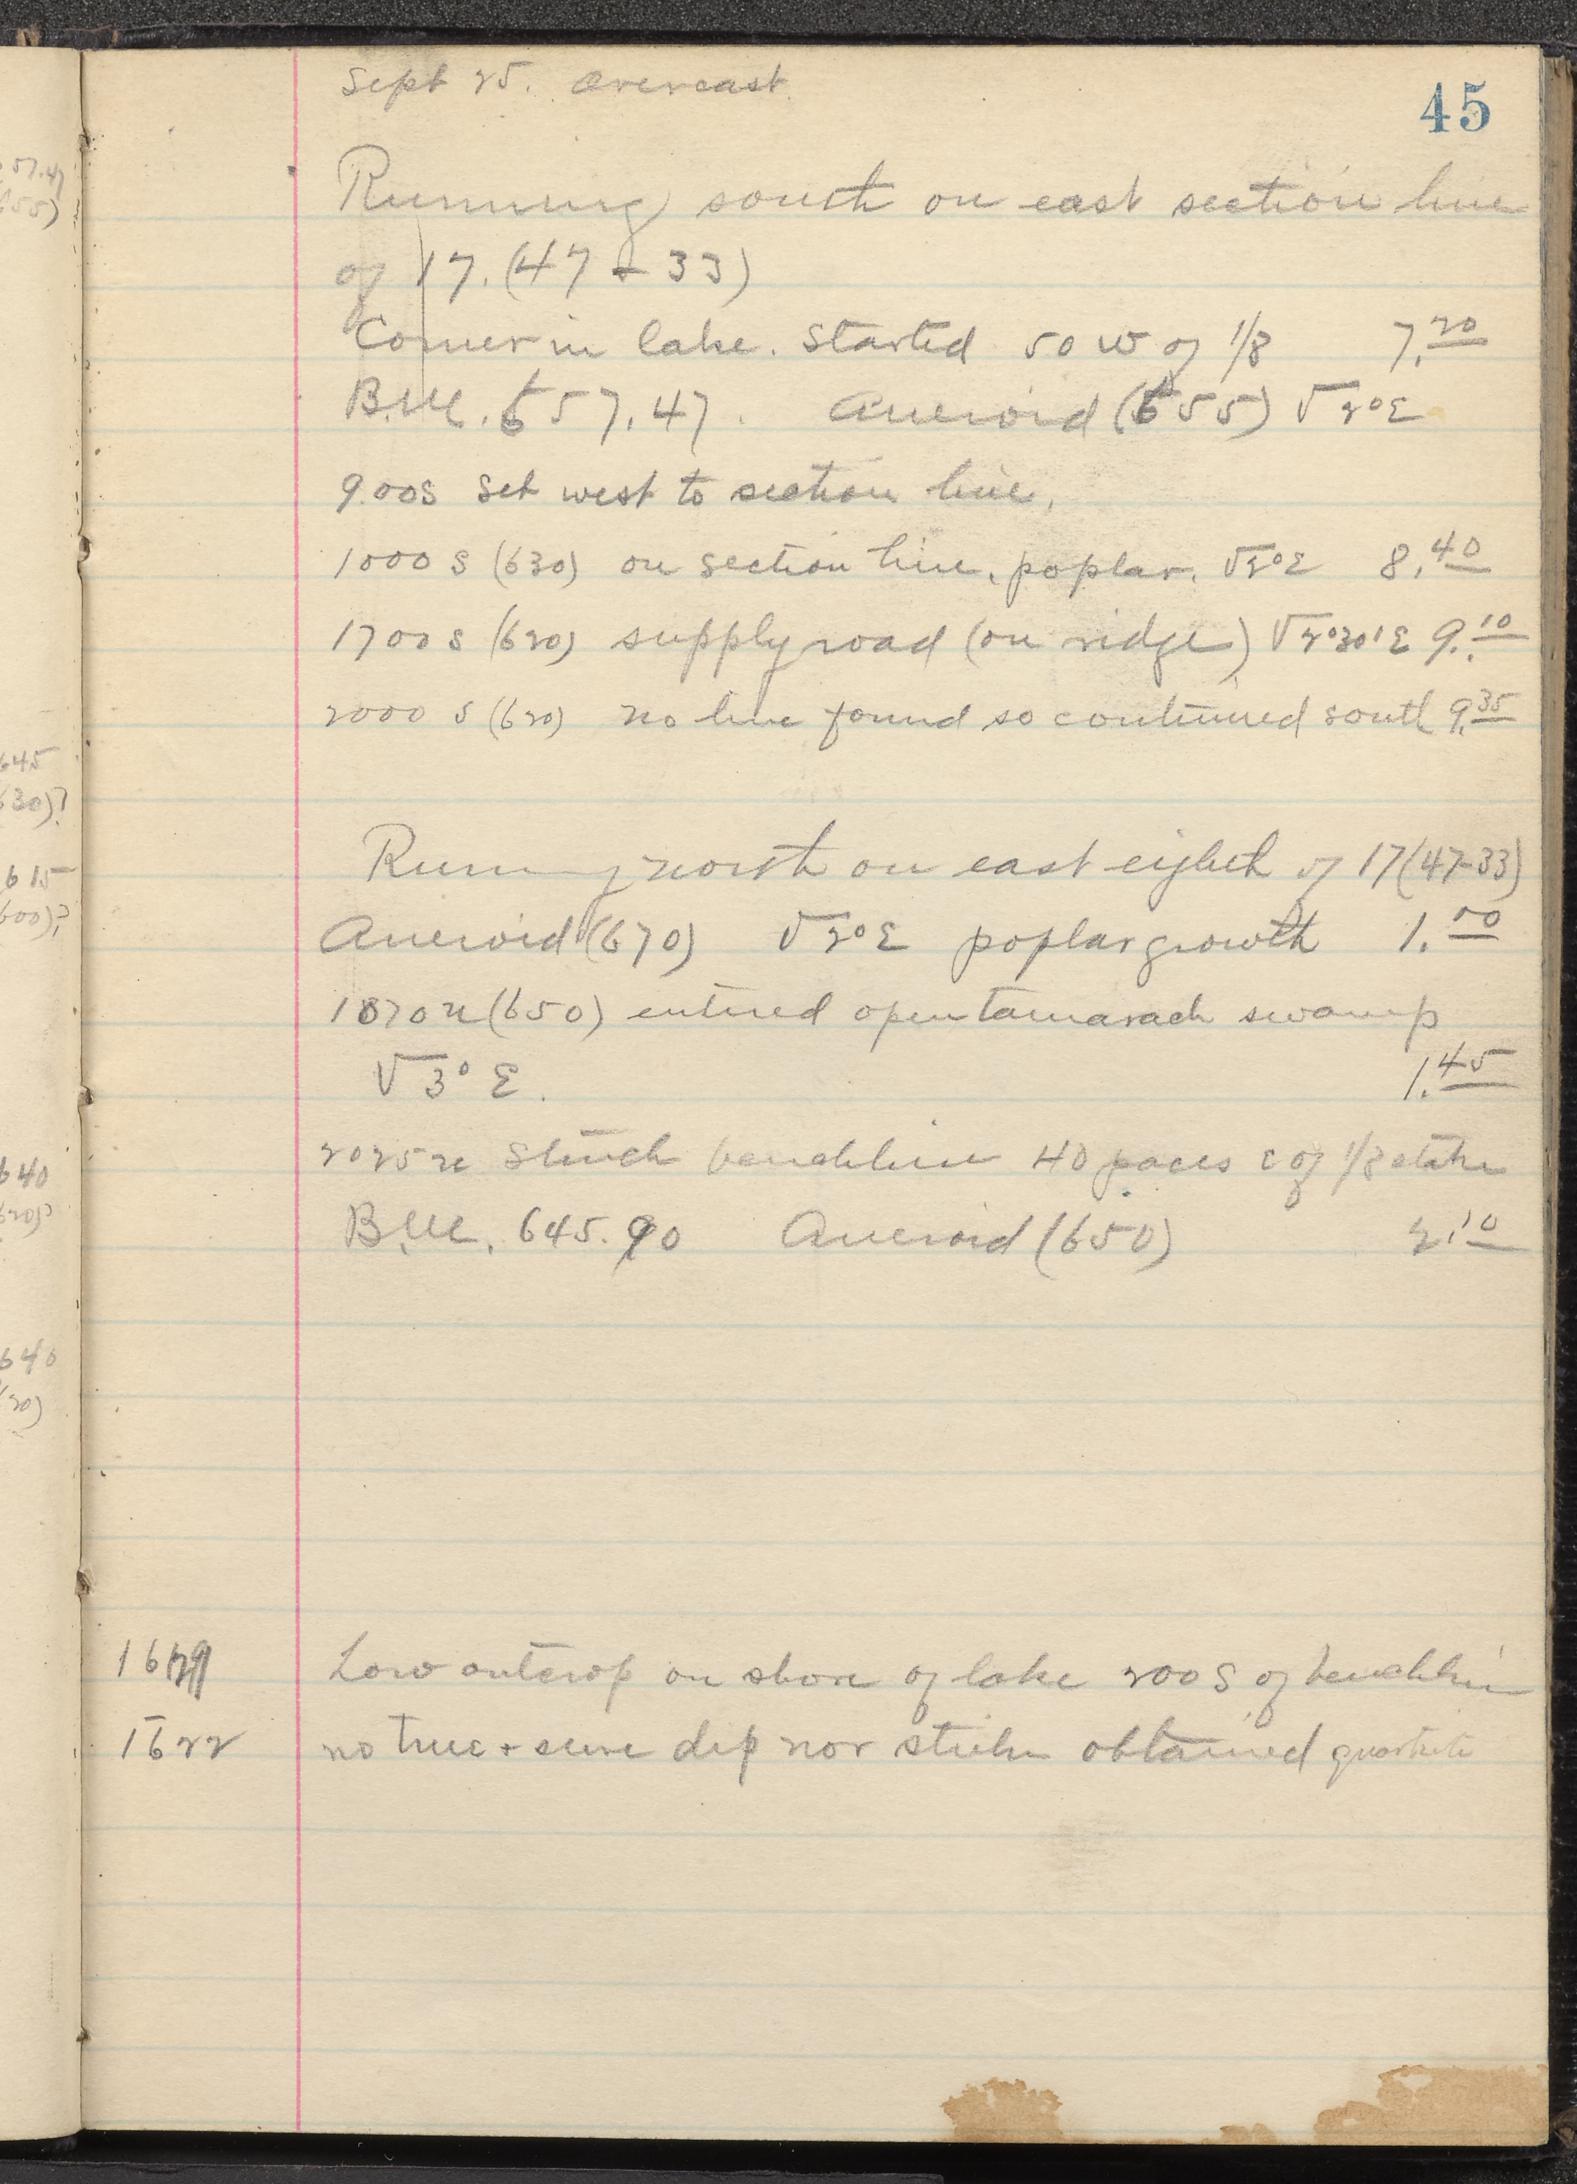 45
Sept 25. Overcast.
Running south on east section line
of 17. (47 - 33)
Corner in lake. Started 50 W of 1/8 7.20
B.M. 657.47. Aneroid (655) √2°E
900S Set west to section line.
1000 S (630) on section line, poplar. √2°E 8.40
1700 S (620) supply road (on ridge) √2°30'E 9.10
2000 S (620) no line found so continued south 9.35
Running north on east eighth of 17 (47-33)
Aneroid (670) √2°E poplar growth 1.00
1070 N (650) entered open tamarack swamp
√3°E. 1.45
2025 N Struck benchline 40 paces E of 1/8 stake
B.M. 645.90 Aneroid (650) 2.10
Low outcrop on shore of lake 200 S of benchline
1622 no true + sure dip nor strike obtained quartzite
57.47
655)
645
630)?
615
600)?
640
620)?
640